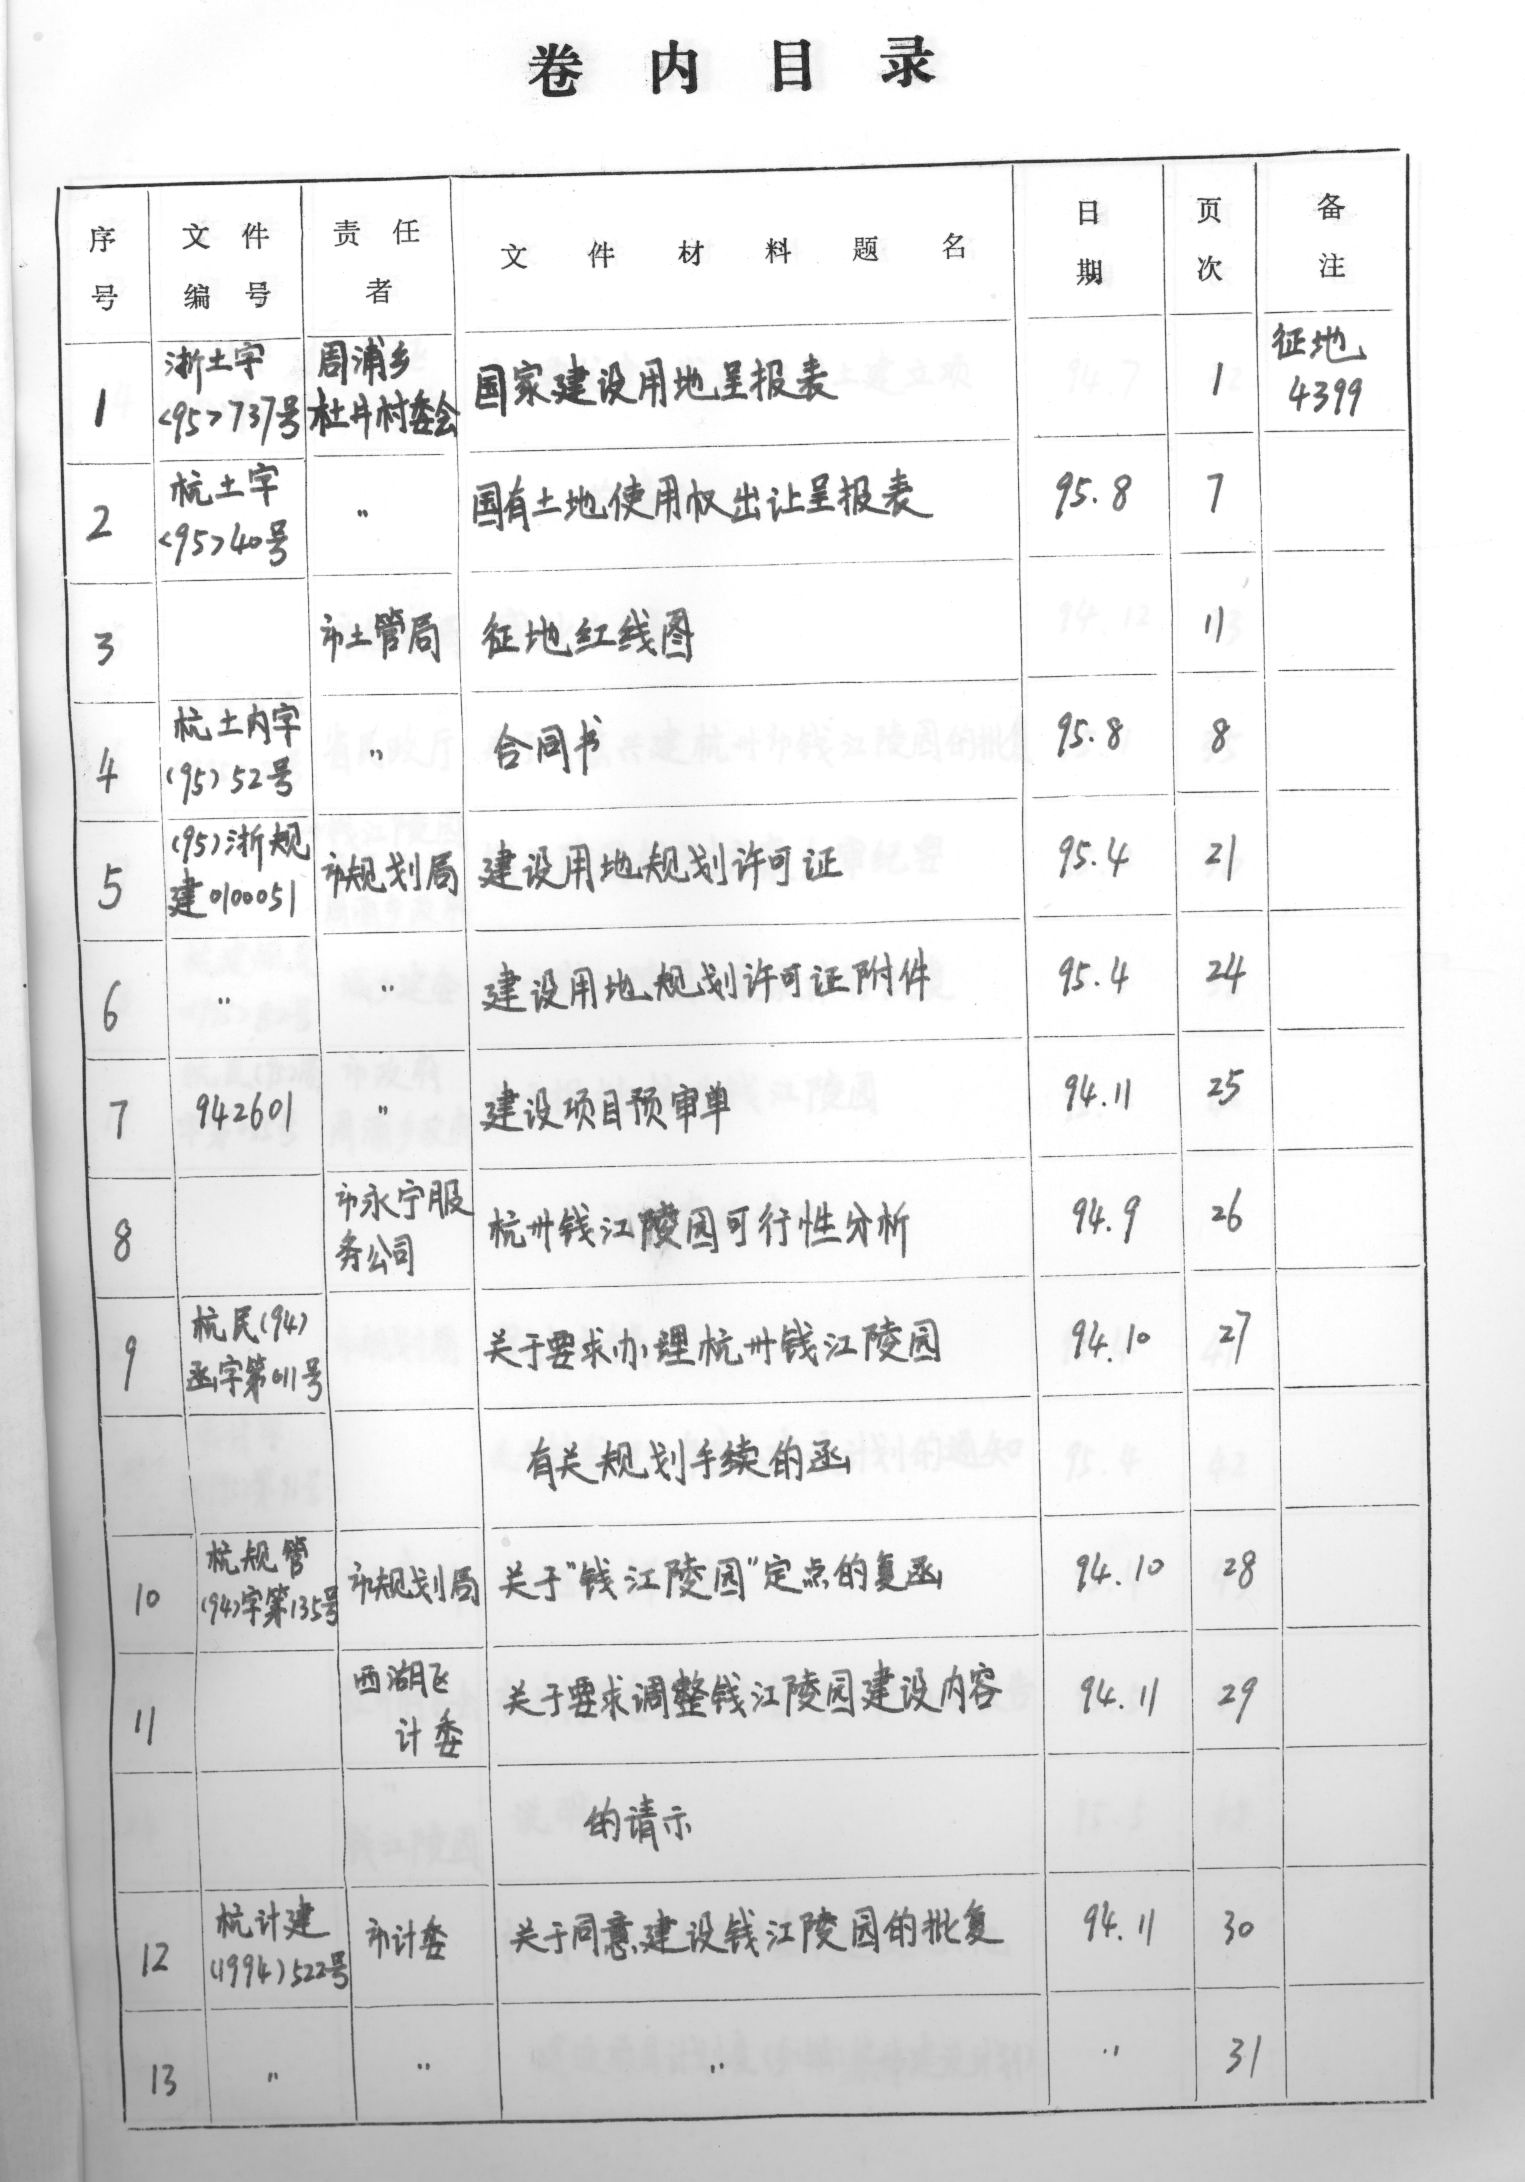 卷内目录
序号 文件编号 责任者 文件材料题名 日期 页次 备注
1 浙土字<95>737号 周浦乡杜井村委会 国家建设用地呈报表 1 征地4399
2 杭土字<95>40号 〃 国有土地使用权出让呈报表 95.8 7
3 市土管局 征地红线图 11
4 杭土内字(95)52号 〃 合同书 95.8 8
5 (95)浙规建0100051 市规划局 建设用地规划许可证 95.4 21
6 〃 〃 建设用地规划许可证附件 95.4 24
7 942601 〃 建设项目预审单 94.11 25
8 市永宁服务公司 杭州钱江陵园可行性分析 94.9 26
9 杭民(94)函字第011号 关于要求办理杭州钱江陵园 94.10 27
有关规划手续的函
10 杭规管(94)字第135号 市规划局 关于"钱江陵园"定点的复函 94.10 28
11 西湖区计委 关于要求调整钱江陵园建设内容 94.11 29
的请示
12 杭计建(1994)522号 市计委 关于同意建设钱江陵园的批复 94.11 30
13 〃 〃 〃 〃 31